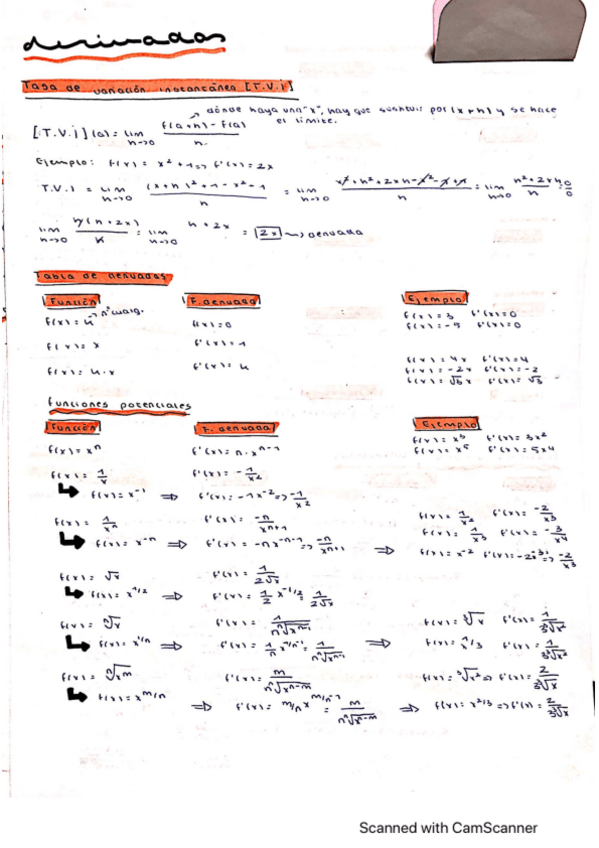 derivadas
Tasa de variación instantánea [T.V.i]
dónde haya una "x", hay que sustituir por (x+h) y se hace
el límite.
[T.V.i](a) = lim h→0 f(a+h)-f(a) / h
Ejemplo: f(x) = x²+1 => f'(x) = 2x
T.V.i = lim h→0 (x+h)²+1-x²-1 / h = lim h→0 x²+h²+2xh-x²-1+1 / h = lim h→0 h²+2xh / h = 0/0
lim h→0 h(h+2x) / h = lim h→0 h+2x = 2x → derivada
Tabla de derivadas
Función F. derivada Ejemplo
f(x) = k → nº cualq. f(x) = 0 f(x) = 3 f'(x) = 0
f(x) = -5 f'(x) = 0
f(x) = x f'(x) = 1
f(x) = k·x f'(x) = k f(x) = 4x f'(x) = 4
f(x) = -2x f'(x) = -2
f'(x) = √3
funciones potenciales
Función F. derivada Ejemplo
f(x) = xⁿ f'(x) = n·xⁿ⁻¹ f(x) = x³ f'(x) = 3x²
f(x) = x⁵ f'(x) = 5x⁴
f(x) = 1/x f'(x) = -1/x²
f(x) = x⁻¹ => f'(x) = -1x⁻² => -1/x²
f(x) = 1/xⁿ f'(x) = -n/xⁿ⁺¹ f(x) = 1/x² f'(x) = -2/x³
f(x) = 1/x³ f'(x) = -3/x⁴
f(x) = x⁻ⁿ => f'(x) = -nx⁻ⁿ⁻¹ => -n/xⁿ⁺¹ => f(x) = x⁻² f'(x) = -2x⁻³ => -2/x³
f(x) = √x f'(x) = 1/2√x
f(x) = x^1/2 => f'(x) = 1/2 x^-1/2 = 1/2√x
f(x) = ⁿ√x f'(x) = 1/n ⁿ√xⁿ⁻¹ f(x) = ³√x f'(x) = 1/3 ³√x²
f(x) = x^1/n => f'(x) = 1/n x^1/n-1 = 1/n ⁿ√xⁿ⁻¹ => f(x) = x^1/3 f'(x) = 1/3 ³√x²
f(x) = ⁿ√xᵐ f'(x) = m/n ⁿ√xⁿ⁻ᵐ f(x) = ³√x² => f'(x) = 2/3 ³√x
f(x) = x^m/n => f'(x) = m/n x^m/n-1 = m/n ⁿ√xⁿ⁻ᵐ => f(x) = x^2/3 => f'(x) = 2/3 ³√x
Scanned with CamScanner